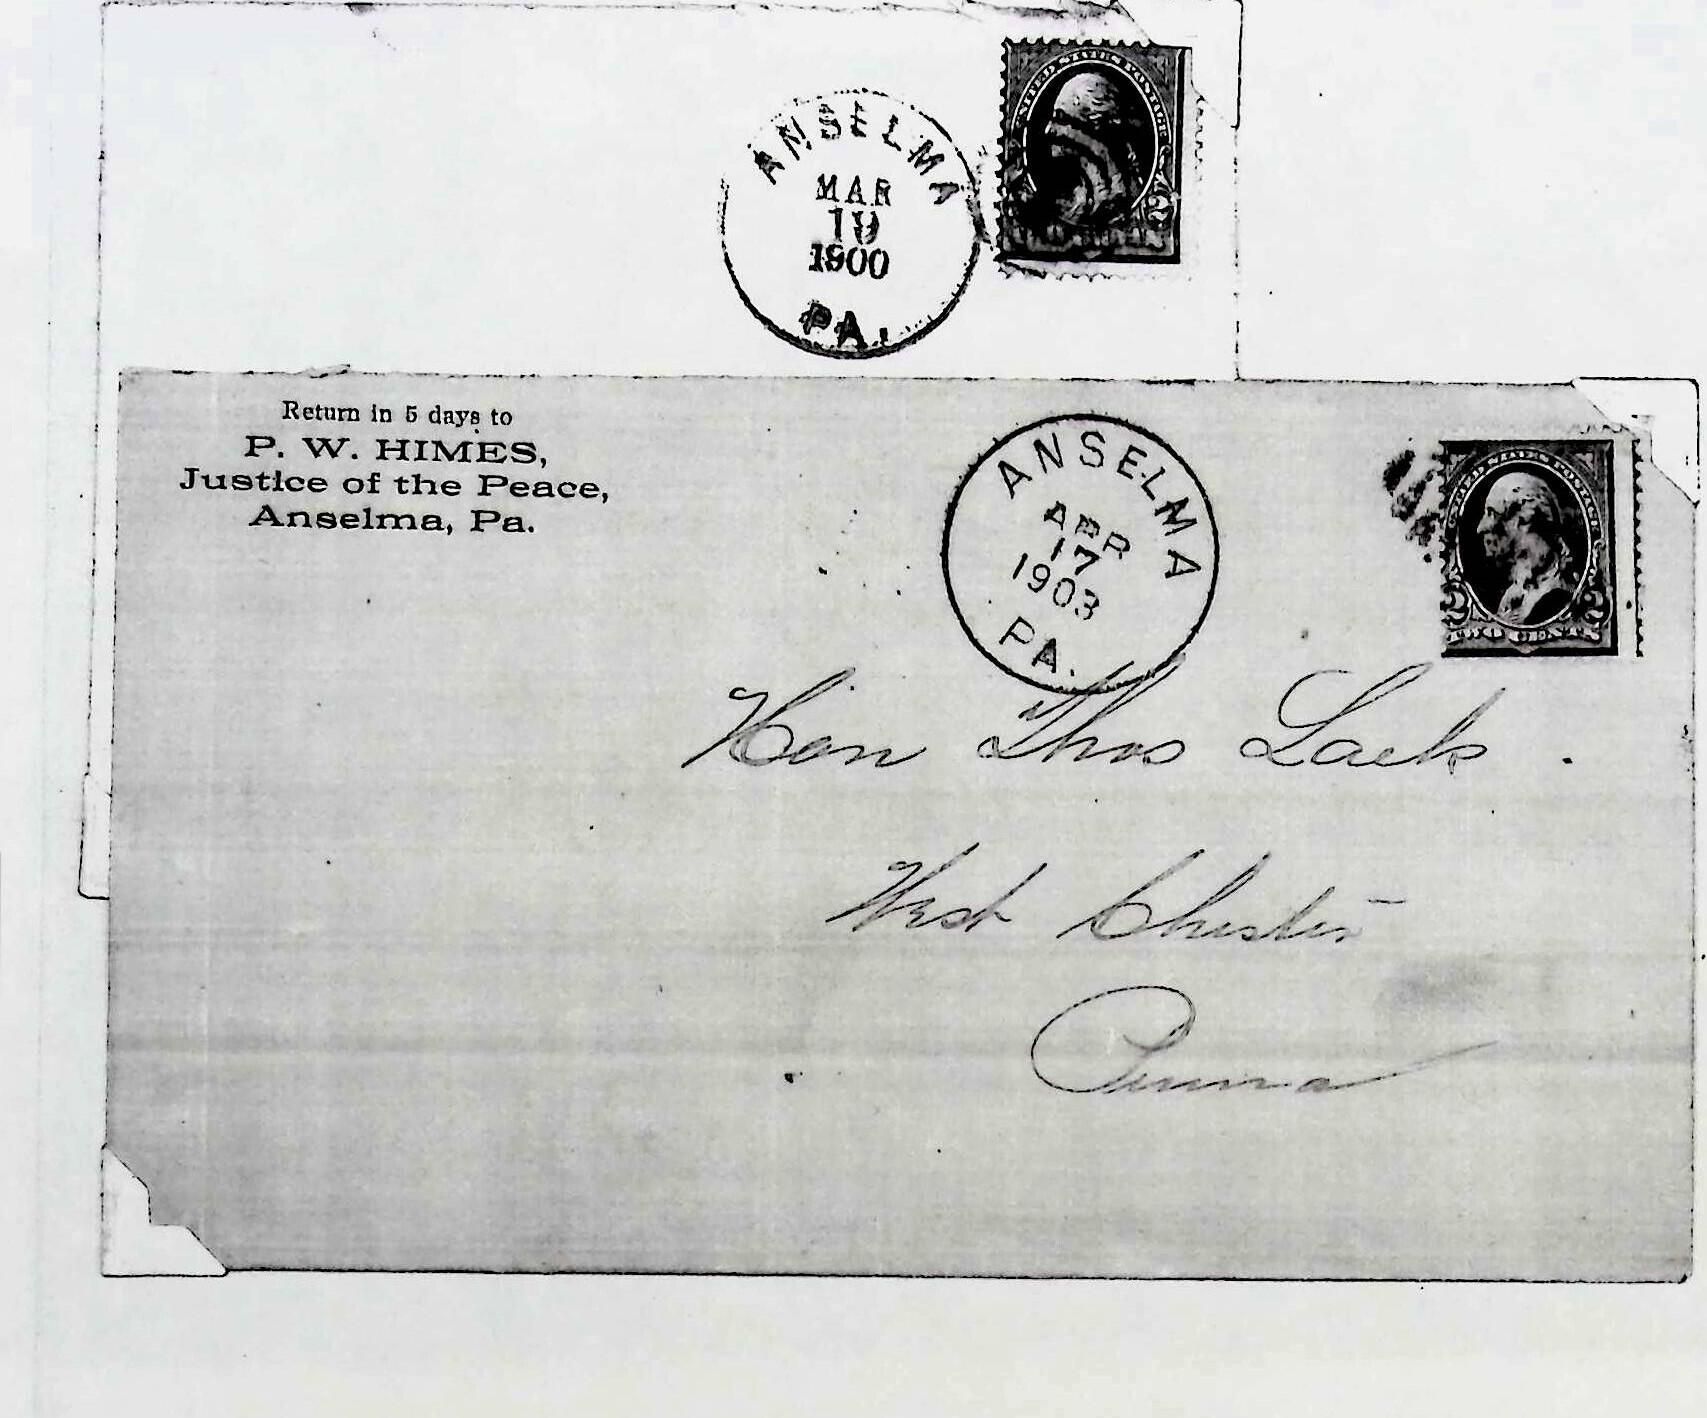 ANSELMA
MAR
19
1900
PA.
UNITED STATES POSTAGE
2
Return in 5 days to
P. W. HIMES,
Justice of the Peace,
Anselma, Pa.
ANSELMA
APR
17
1903
PA.
UNITED STATES POSTAGE
2 2
TWO CENTS
Hon Thos Lack
West Chester
Penna